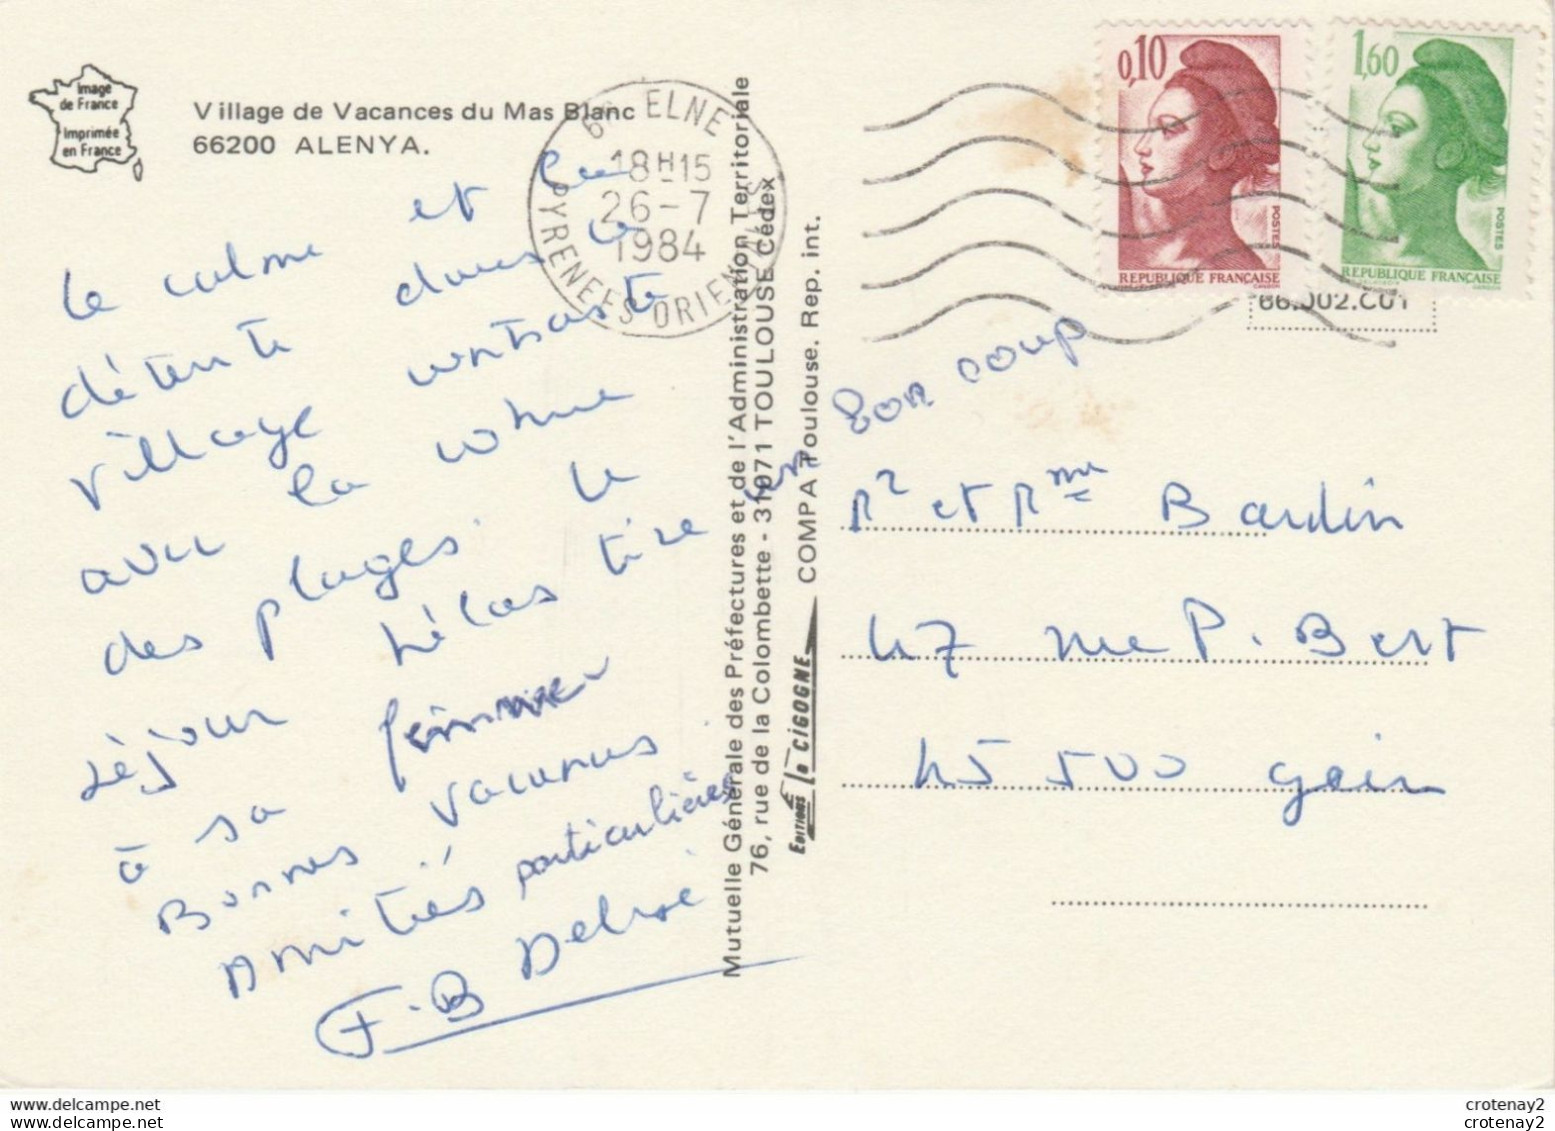 Image
de France
Imprimée
en France
Village de Vacances du Mas Blanc
66200 ALENYA.
66 ELNE
18H15
26-7
1984
PYRENEES ORIENTALES
0,10
POSTES
REPUBLIQUE FRANÇAISE
1,60
POSTES
REPUBLIQUE FRANÇAISE
66.002.C01
le calme et la
détente dans le
village contraste
avec la cohue
des plages le
séjour hélas tire
à sa
Bonnes vacances
Amitiés particulières
F.B Delroi
Mutuelle Générale des Préfectures et de l'Administration Territoriale
76, rue de la Colombette - 31071 TOULOUSE Cédex
Editions La CIGOGNE COMPA Toulouse. Rep. int.
Bon coup
Mr et Mme Bardin
47 rue P. Bert
45 500 Gien
crotenay2
crotenay2
crotenay2
crotenay2